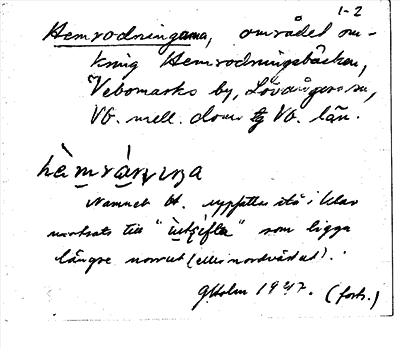 1-2
Hemrodningarna, området om-
kring Hemrodningsbäcken,
Vebomarks by, Lövångers sn,
Vb. mell. doms Vb. län.
hèmrànıŋa
Namnet bt. uppfattas stå i klar
motsats till "ùtſìftə" som ligga
längre norrut (eller nordväst).
G. Holm 1947. (forts.)